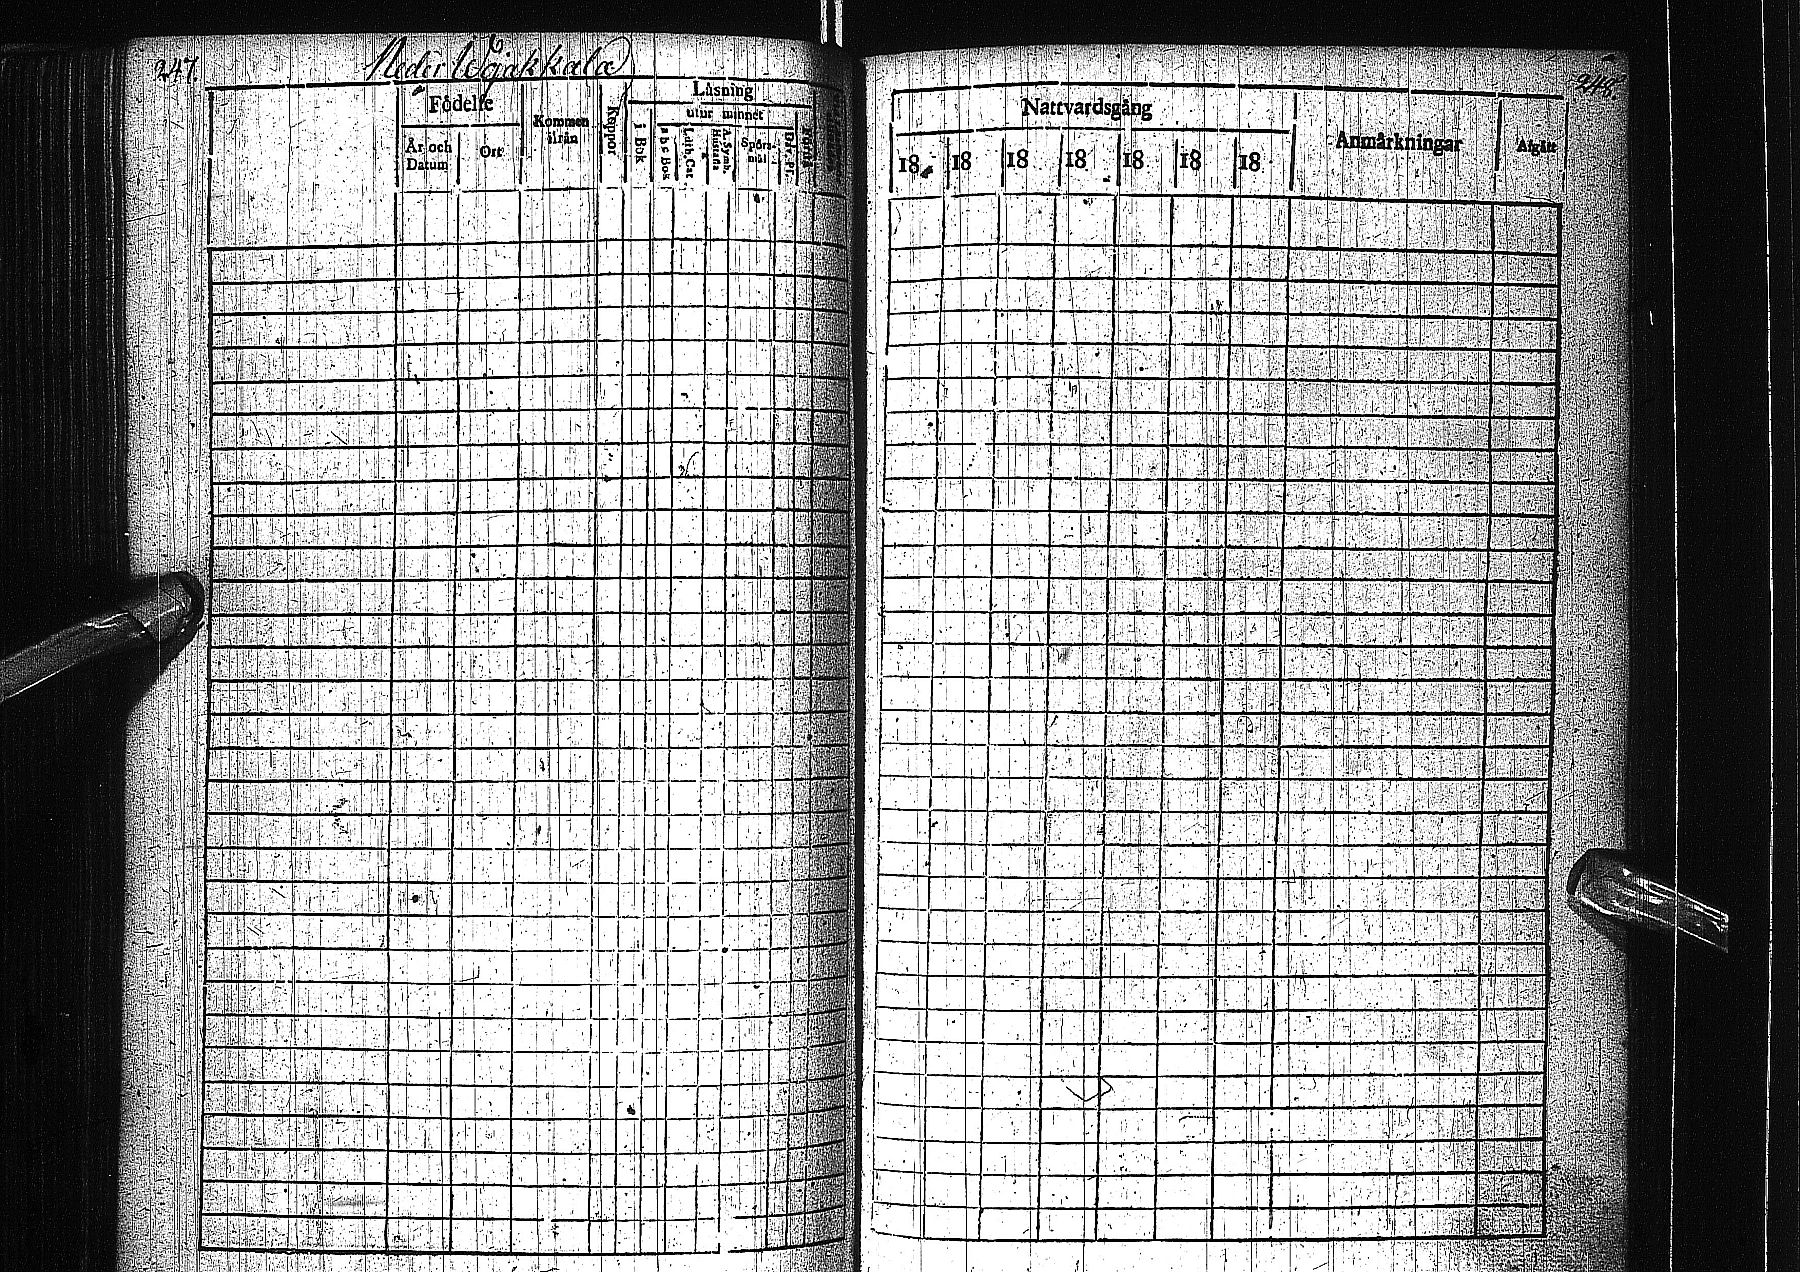 247.
Neder Wäjakkala
Födelse
Är och Datum
Ort
Kommen ifrån
Koppor
Läsning
i Bok
utur minnet
a b c Bok
Luth. Cat.
A. Symb.
Spörsmål
Nattvardsgång
18
18
18
18
18
18
18
Anmärkningar
Afgått
248.